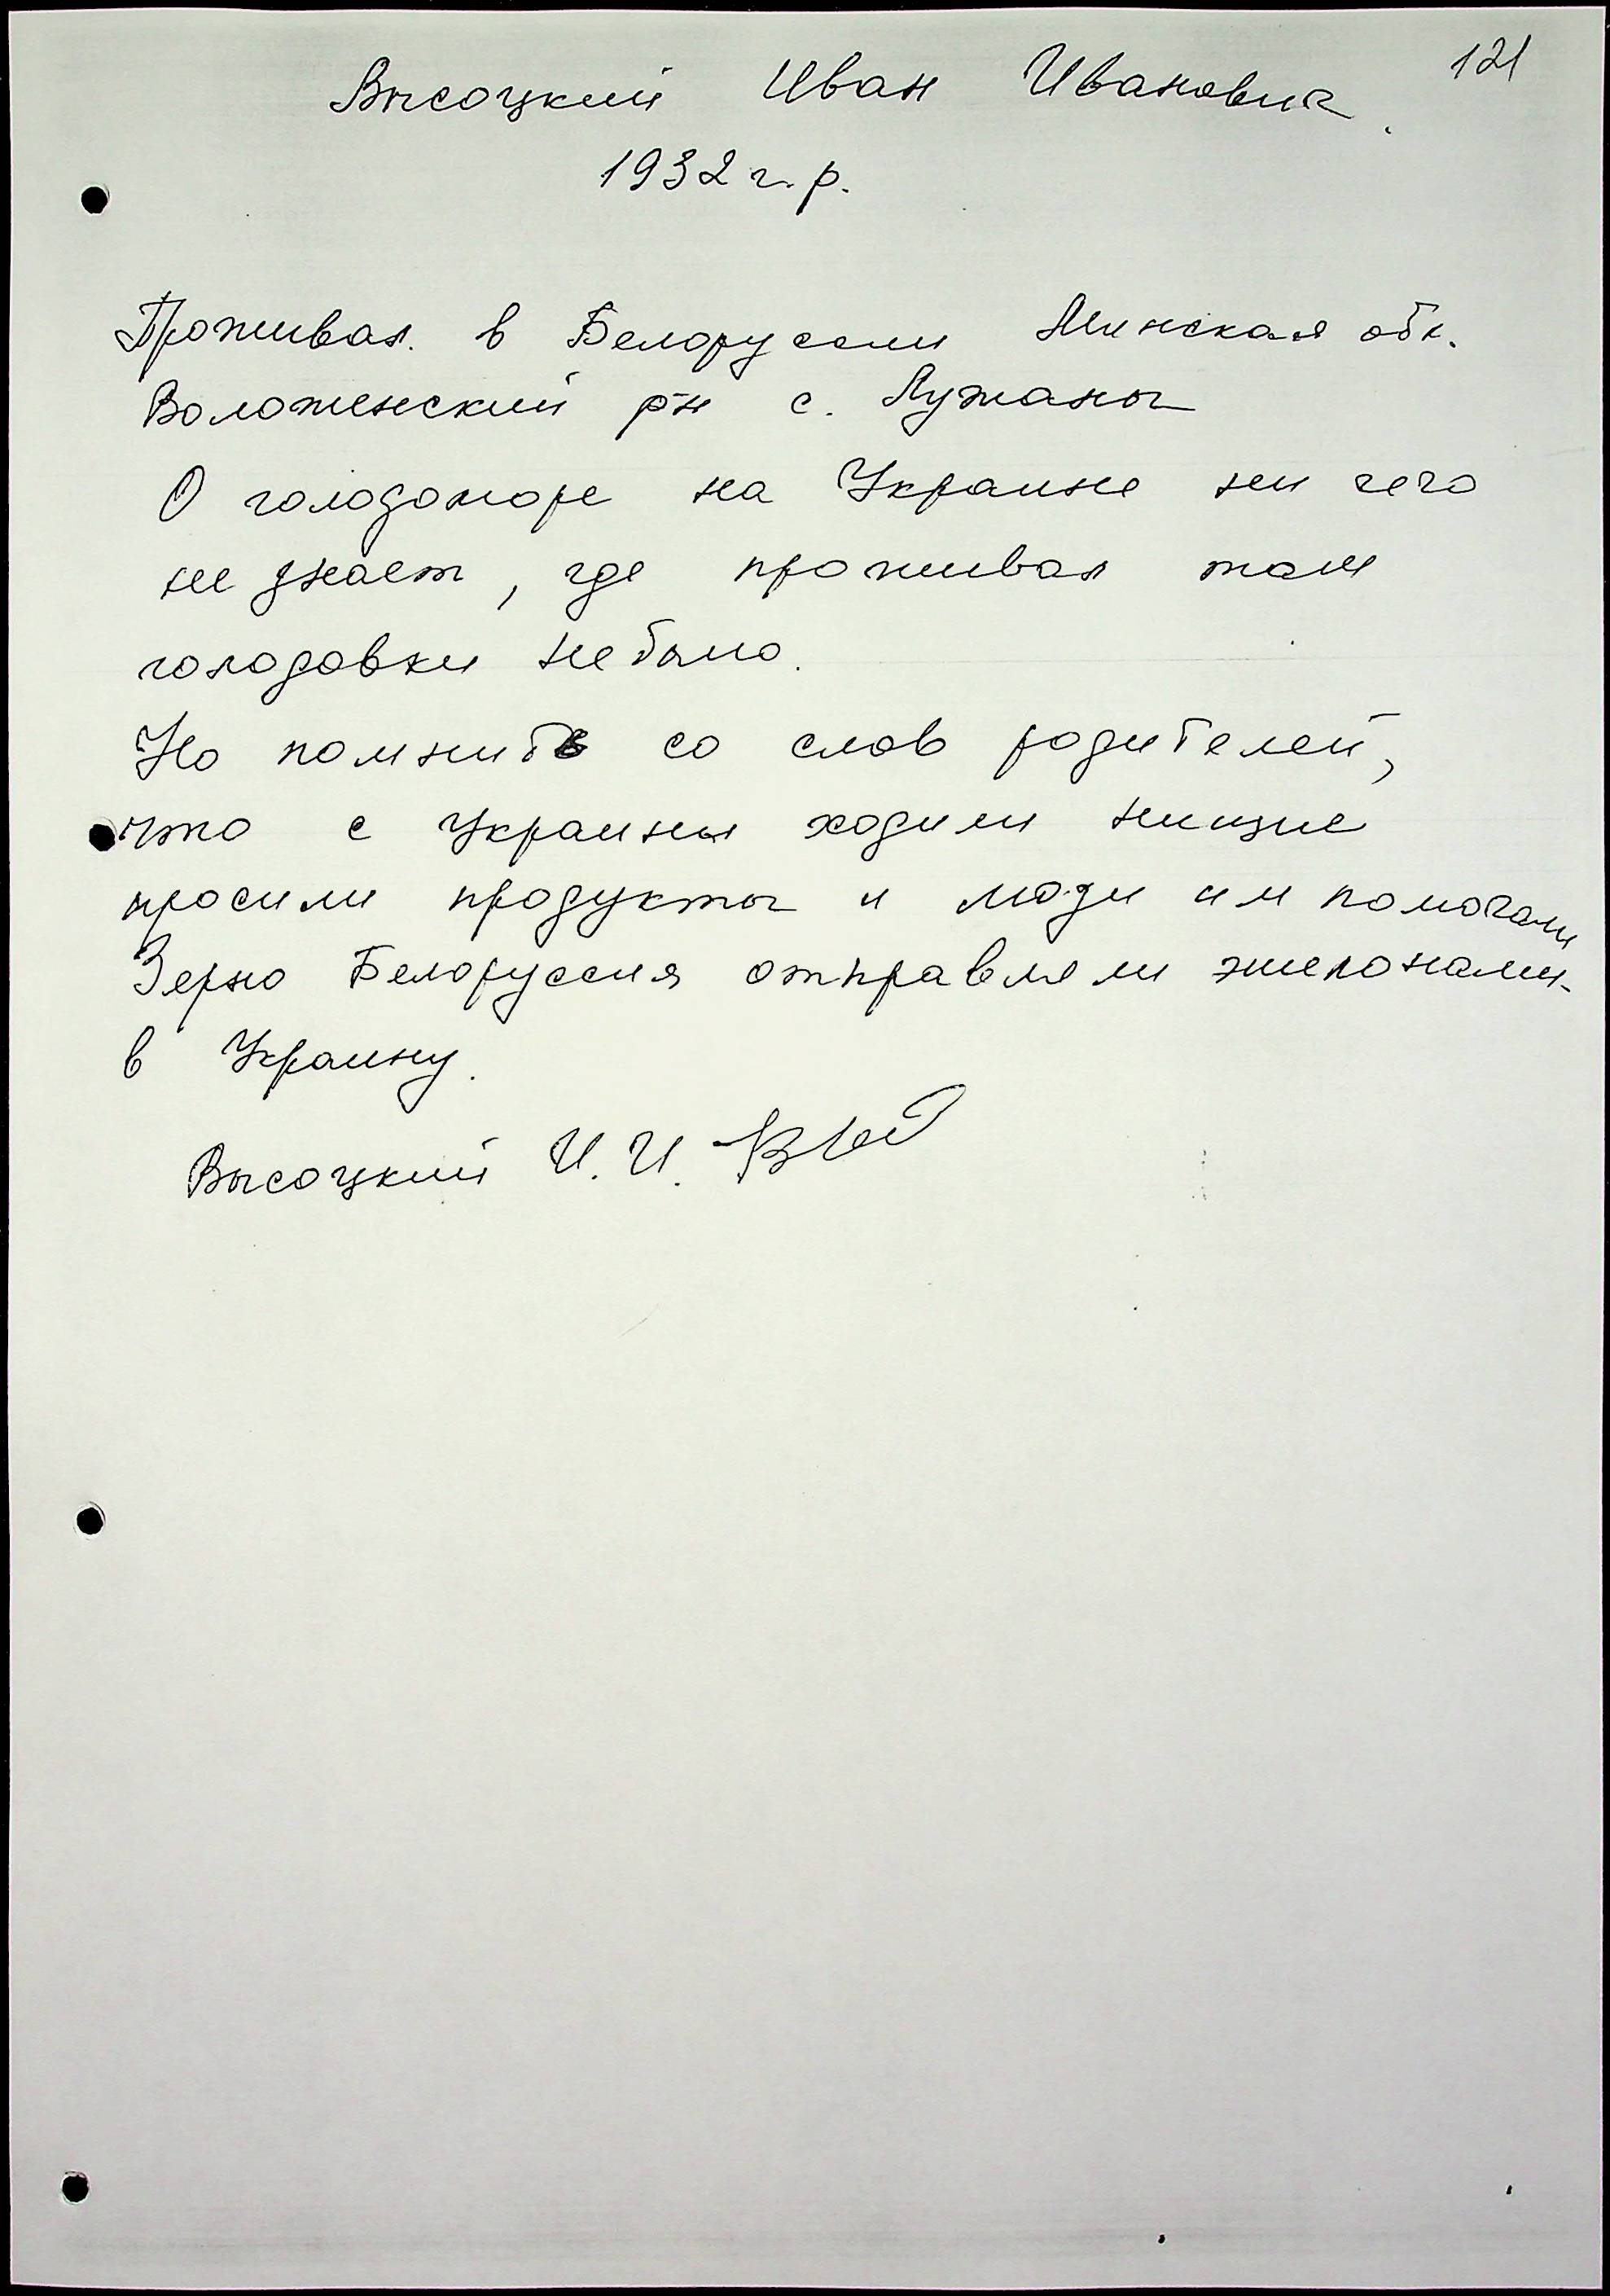 121
Высоцкий Иван Иванович.
1932 г.р.
Проживал. в Белоруссии Минская обл.
Воложенский р-н с. Лужаны
О голодоморе на Украине ни чего
не знает, где проживал там
голодовки не было.
Но помнит со слов родителей,
что с Украины ходили нищие
просили продукты и люди им помогали
Зерно Белоруссия отправляли эшелонами
в Украину.
Высоцкий И. И.